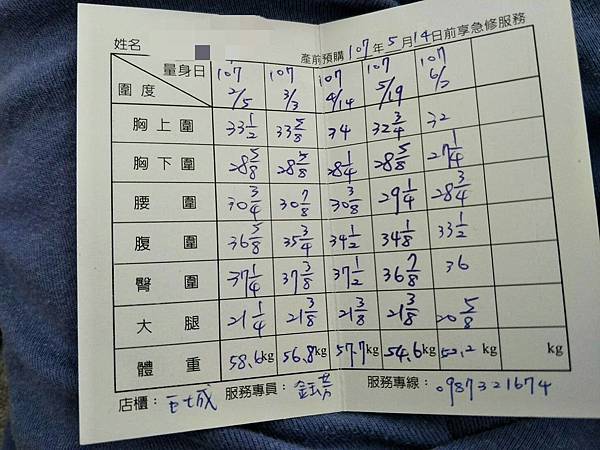 姓名
產前預購 107 年 5 月 14 日前享急修服務
量身日 107 2/5 107 3/3 107 4/14 107 5/19 107
圍度
胸上圍 33 1/2 33 5/8 34 32 3/4 32
胸下圍 28 5/8 28 5/8 28 1/4 28 5/8 27 1/4
腰圍 30 3/4 30 7/8 30 3/8 29 1/4 28 3/4
腹圍 36 5/8 35 3/4 34 1/2 34 1/8 33 1/2
臀圍 37 1/4 37 3/8 37 1/2 36 7/8 36
大腿 21 1/4 21 3/8 21 3/8 21 3/8 20 5/8
體重 58.6kg 56.8kg 57.7kg 54.6kg 52.2 kg kg
店櫃： 服務專員： 服務專線：0987321674